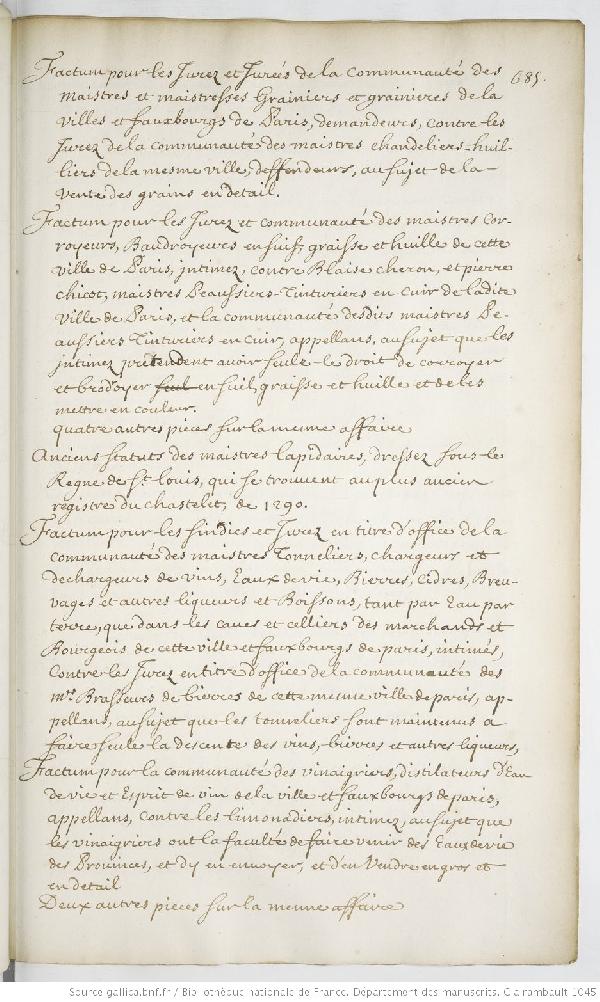 685.
Factum pour les Jurez et Jurées de la Communauté des
maistres et maistresses Grainiers et grainieres de la
villes et fauxbourgs de Paris, demandeurs, contre les
Jurez de la communauté des maistres chandeliers-huil-
liers de la mesme ville, deffendeurs, au sujet de la
vente des grains en detail.
Factum pour les Jurez et communauté des maistres Cor-
royeurs, Baudroyeurs en suif, graisse et huille de cette
ville de Paris, jntimez, contre Blaise cheron, et pierre
chicot, maistres Peaussiers-Tinturiers en cuir de ladite
ville de Paris, et la communauté desdits maistres Pe-
aussiers Tinturiers en cuir, appellans, au sujet que les
jntimez prétendent avoir seuls le droit de corroyer
et brodoyer seul en suif, graisse et huille et de les
mettre en couleur.
quatre autres pieces sur la mesme affaire
Anciens statuts des maistres Lapidaires, dressez sous le
Regne de St. Louis, qui se trouvent au plus ancien
registre du chastelet, de 1290.
Factum pour les sindics et Jurez en titre d'office de la
communauté des maistres Tonneliers, chargeurs et
dechargeurs de vins, Eaux de vie, Bierres, Cidres, Breu-
vages et autres liqueurs et Boissons, tant par Eau par
terre, que dans les caves et celliers des marchands et
Bourgeois de cette ville et fauxbourgs de paris, intimés,
Contre les Jurez en titre d'office de la communauté des
mes. Brasseurs de bierres de cette mesme ville de paris, ap-
pellans, au sujet que les tonneliers sont maintenus a
faire seuls la descente des vins, bierres et autres liqueurs,
Factum pour la communauté des vinaigriers, distilateurs d'Eau
de vie et Esprit de vin de la ville et fauxbourgs de paris,
appellans, Contre les limonadiers, intimez, au sujet que
les vinaigriers ont la faculté de faire venir des Eaux de vie
des Provinces, et d'y en envoyer, et d'en Vendre en gros et
en detail
Deux autres pieces sur la mesme affaire
Source gallica.bnf.fr / Bibliothèque nationale de France. Département des manuscrits. Clairambault 1045